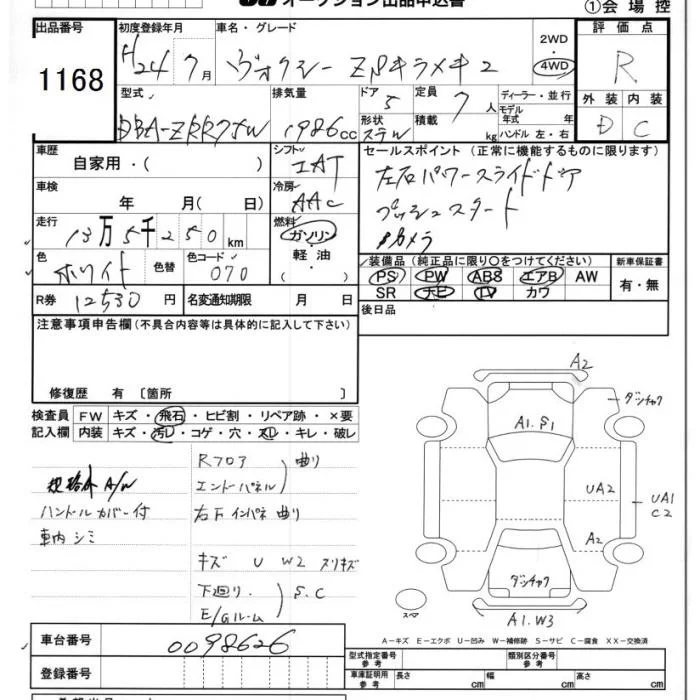 オークション出品申込書
①会場控
出品番号
1168
初度登録年月
H24 7月
車名・グレード
ヴォクシー ZSキラメキ2
2WD
・
4WD
評価点
R
型式
DBA-ZRR75W
排気量
1986cc
ドア
5
定員
7人
形状
ステW
積載
kg
ディーラー・並行
モデル
年式 年
ハンドル 左・右
外装 内装
D C
車歴
自家用・( )
シフト
IAT
セールスポイント(正常に機能するものに限ります)
左右パワースライドドア
プッシュスタート
Bカメラ
車検
年 月( 日)
冷房
AAC
走行
13万5千250km
燃料
ガソリン
・
軽油
・
( )
色
ホワイト
色替
色コード
070
装備品(純正品に限り○をつけてください)
PS PW ABS エアB AW
SR ナビ TV カワ
新車保証書
有・無
R券 12530円
名変通知期限 月 日
後日品
注意事項申告欄(不具合内容等は具体的に記入して下さい)
修復歴 有〔箇所 〕
検査員
記入欄
FW キズ・飛石・ヒビ割・リペア跡・×要
内装 キズ・汚レ・コゲ・穴・スレ・キレ・破レ
規格外 A/W
ハンドルカバー付
車内シミ
Rフロア
エンドパネル
曲り
右下インパネ曲り
キズ U W2 スリキズ
下廻り.
E/Gルーム
S.C
A2
ダンチャク
A1.S1
UA2
UA1
C2
A2
ダンチャク
スペア
A1.W3
A−キズ E−エクボ U−凹み W−補修跡 S−サビ C−腐食 XX−交換済
車台番号
0098626
登録番号
型式指定番号
参考
類別区分番号
参考
車庫証明用
参考
長さ cm
幅 cm
高さ cm